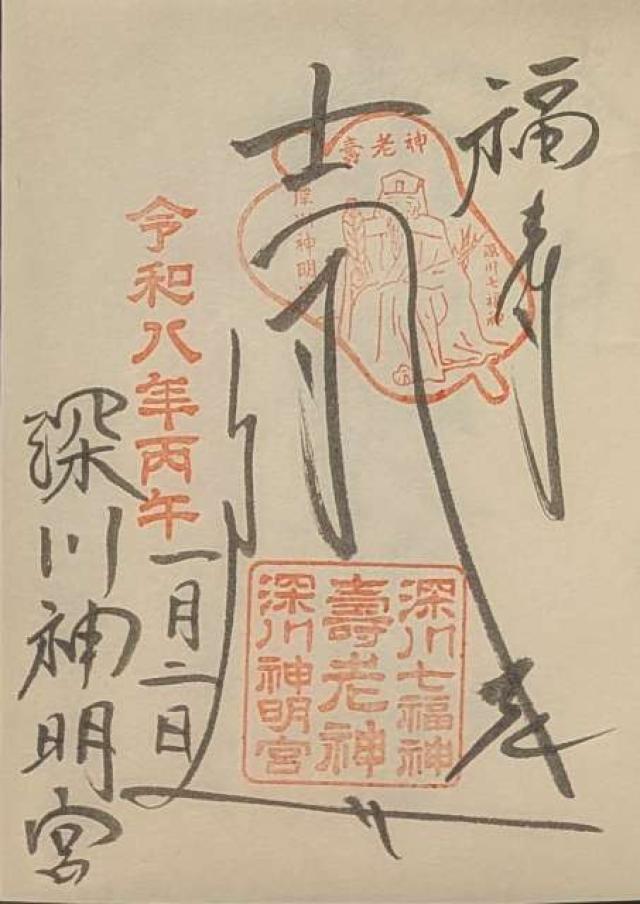 福寿
壽老神
深川七福神
深川神明
深川七福神
壽老神
深川神明宮
令和八年丙午
一月二日
深川神明宮